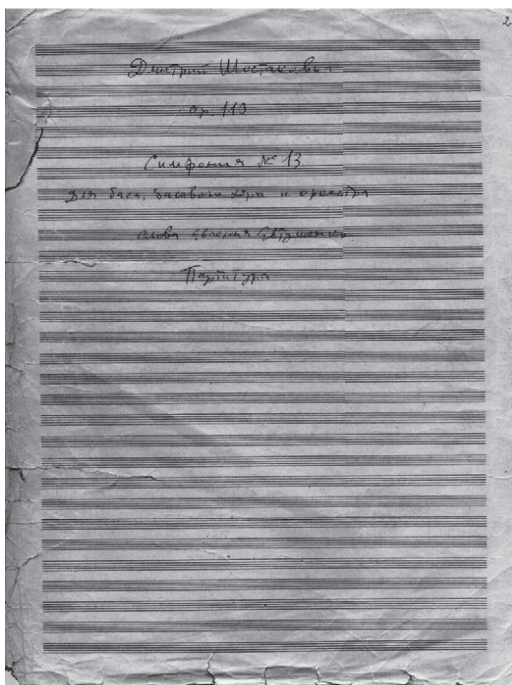 2
Дмитрий Шостакович
ор. 113
Симфония № 13
для баса, басового хора и оркестра
слова Евгения Евтушенко
Партитура